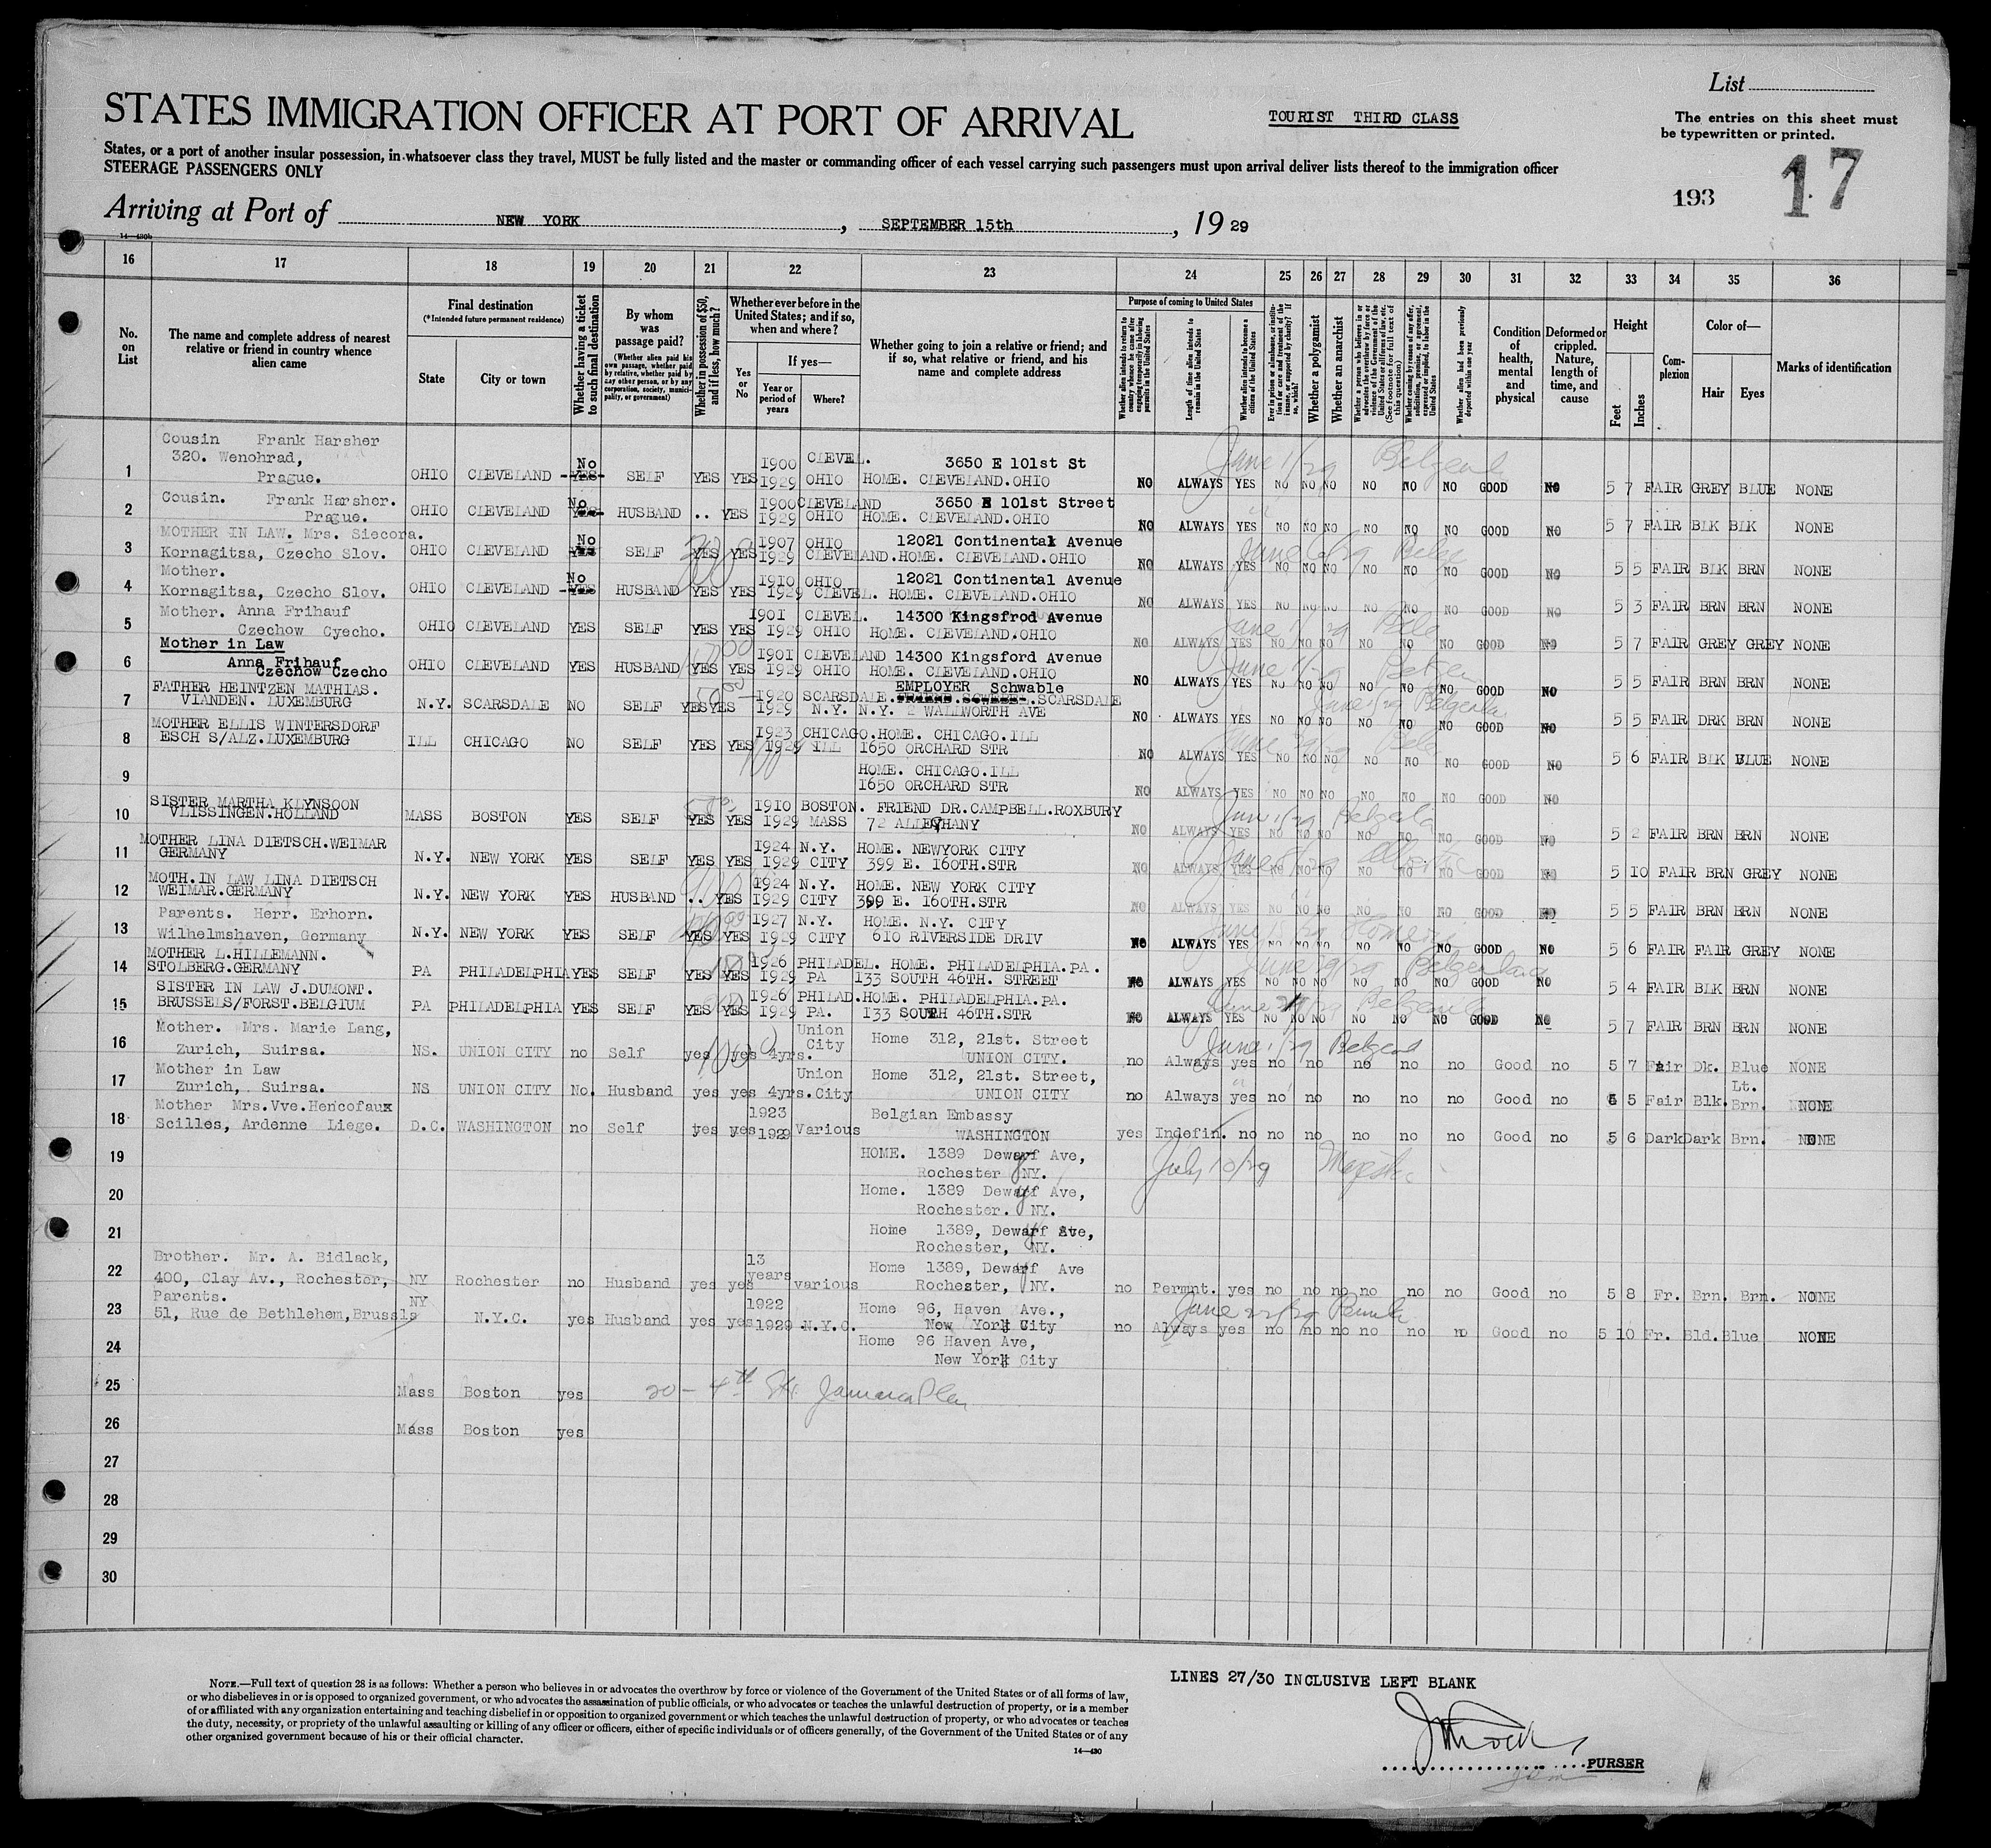 List
STATES IMMIGRATION OFFICER AT PORT OF ARRIVAL
TOURIST THIRD CLASS
The entries on this sheet must
be typewritten or printed.
States, or a port of another insular possession, in whatsoever class they travel, MUST be fully listed and the master or commanding officer of each vessel carrying such passengers must upon arrival deliver lists thereof to the immigration officer
STEERAGE PASSENGERS ONLY
193 17
Arriving at Port of NEW YORK, SEPTEMBER 15th, 19 29
14—430b
16 17 18 19 20 21 22 23 24 25 26 27 28 29 30 31 32 33 34 35 36
No. on List
The name and complete address of nearest relative or friend in country whence alien came
Final destination
(*Intended future permanent residence)
State
City or town
Whether having a ticket to such final destination
By whom was passage paid?
(Whether alien paid his own passage, whether paid by relative, whether paid by any other person, or by any corporation, society, municipality, or government)
Whether in possession of $50, and if less, how much?
Whether ever before in the United States; and if so, when and where?
Yes or No
If yes—
Year or period of years
Where?
Whether going to join a relative or friend; and if so, what relative or friend, and his name and complete address
Purpose of coming to United States
Whether alien intends to return to country whence he came after engaging temporarily in laboring pursuits in the United States
Length of time alien intends to remain in the United States
Whether alien intends to become a citizen of the United States
Ever in prison or almshouse, or institution for care and treatment of the insane, or supported by charity? If so, which?
Whether a polygamist
Whether an anarchist
Whether a person who believes in or advocates the overthrow by force or violence of the Government of the United States or all forms of law, etc. (See footnote for full text of this question)
Whether coming by reason of any offer, solicitation, promise, or agreement, expressed or implied, to labor in the United States
Whether alien had been previously deported within one year
Condition of health, mental and physical
Deformed or crippled. Nature, length of time, and cause
Height
Feet
Inches
Complexion
Color of—
Hair
Eyes
Marks of identification
Cousin Frank Harsher
320. Wenohrad,
Prague.
1 OHIO CLEVELAND YES No SELF YES YES 1900 1929 CLEVEL. OHIO 3650 E 101st St HOME. CLEVELAND.OHIO NO ALWAYS YES NO NO NO NO NO NO GOOD NO 5 7 FAIR GREY BLUE NONE
June 1/29
Cousin. Frank Harsher.
Prague.
2 OHIO CLEVELAND YES No HUSBAND .. YES 1900 1929 CLEVELAND OHIO 3650 E 101st Street HOME. CLEVELAND.OHIO NO ALWAYS YES NO NO NO NO NO NO GOOD NO 5 7 FAIR BLK BLK NONE
MOTHER IN LAW. Mrs. Siecora.
Kornagitsa, Czecho Slov.
3 OHIO CLEVELAND YES No SELF YES YES 1907 1929 OHIO CLEVELAND. 12021 Continental Avenue HOME. CLEVELAND.OHIO NO ALWAYS YES NO NO NO NO NO NO GOOD NO 5 5 FAIR BLK BRN NONE
Mother.
Kornagitsa, Czecho Slov.
4 OHIO CLEVELAND YES No HUSBAND YES YES 1910 1929 OHIO CLEVEL. 12021 Continental Avenue HOME. CLEVELAND.OHIO NO ALWAYS YES NO NO NO NO NO NO GOOD NO 5 3 FAIR BRN BRN NONE
Mother. Anna Frihauf
Czechow Cyecho.
5 OHIO CLEVELAND YES SELF YES YES 1901 1929 CLEVEL. OHIO 14300 Kingsfrod Avenue HOME. CLEVELAND.OHIO NO ALWAYS YES NO NO NO NO NO NO GOOD NO 5 7 FAIR GREY GREY NONE
Mother in Law
Anna Frihauf
Czechow Czecho
6 OHIO CLEVELAND YES HUSBAND YES YES 1901 1929 CLEVELAND OHIO 14300 Kingsford Avenue HOME. CLEVELAND.OHIO NO ALWAYS YES NO NO NO NO NO NO GOOD NO 5 5 FAIR BRN BRN NONE
FATHER HEINTZEN MATHIAS.
VIANDEN. LUXEMBURG
7 N.Y. SCARSDALE NO SELF YES YES 1920 1929 SCARSDALE. N.Y. EMPLOYER Schwable SCARSDALE N.Y. 2 WALLWORTH AVE NO ALWAYS YES NO NO NO NO NO NO GOOD NO 5 5 FAIR DRK BRN NONE
MOTHER ELLIS WINTERSDORF
ESCH S/ALZ.LUXEMBURG
8 ILL CHICAGO NO SELF YES YES 1923 1929 CHICAGO. ILL HOME. CHICAGO.ILL 1650 ORCHARD STR NO ALWAYS YES NO NO NO NO NO NO GOOD NO 5 6 FAIR BLK BLUE NONE
9 HOME. CHICAGO.ILL 1650 ORCHARD STR NO ALWAYS YES NO NO NO NO NO NO GOOD NO
SISTER MARTHA KLYNSOON
VLISSINGEN.HOLLAND
10 MASS BOSTON YES SELF YES YES 1910 1929 BOSTON. MASS FRIEND DR.CAMPBELL.ROXBURY 72 ALLEGHANY NO ALWAYS YES NO NO NO NO NO NO GOOD NO 5 2 FAIR BRN BRN NONE
MOTHER LINA DIETSCH.WEIMAR
GERMANY
11 N.Y. NEW YORK YES SELF YES YES 1924 1929 N.Y. CITY HOME. NEWYORK CITY 399 E. I60TH.STR NO ALWAYS YES NO NO NO NO NO NO GOOD NO 5 10 FAIR BRN GREY NONE
MOTH.IN LAW LINA DIETSCH
WEIMAR.GERMANY
12 N.Y. NEW YORK YES HUSBAND .. YES 1924 1929 N.Y. CITY HOME. NEW YORK CITY 399 E. I60TH.STR NO ALWAYS YES NO NO NO NO NO NO GOOD NO 5 5 FAIR BRN BRN NONE
Parents. Herr. Erhorn.
Wilhelmshaven, Germany
13 N.Y. NEW YORK YES SELF YES YES 1927 1929 N.Y. CITY HOME. N.Y. CITY 610 RIVERSIDE DRIV NO ALWAYS YES NO NO NO NO NO NO GOOD NO 5 6 FAIR FAIR GREY NONE
MOTHER L.HILLEMANN.
STOLBERG.GERMANY
14 PA PHILADELPHIA YES SELF YES YES 1926 1929 PHILADEL. PA HOME. PHILADELPHIA.PA. 133 SOUTH 46TH. STREET NO ALWAYS YES NO NO NO NO NO NO GOOD NO 5 4 FAIR BLK BRN NONE
Belgenland
SISTER IN LAW J.DUMONT.
BRUSSELS/FORST.BELGIUM
15 PA PHILADELPHIA YES SELF YES YES 1926 1929 PHILAD. PA. HOME. PHILADELPHIA.PA. I33 SOUTH 46TH.STR NO ALWAYS YES NO NO NO NO NO NO GOOD NO 5 7 FAIR BRN BRN NONE
Mother. Mrs. Marie Lang,
Zurich, Suirsa.
16 NS. UNION CITY no Self yes yes 4yrs. Union City Home 312, 21st. Street UNION CITY. no Always yes no no no no no Good no 5 7 Fair Dk. Blue NONE
Mother in Law
Zurich, Suirsa.
17 NS UNION CITY No. Husband yes yes 4yrs. Union City Home 312, 21st. Street, UNION CITY no Always yes no no no no no Good no 5 5 Fair Blk. Lt. Brn. NONE
Mother Mrs.Vve.Hencofaux
Scilles, Ardenne Liege.
18 D.C. WASHINGTON no Self yes yes 1923 1929 Various Belgian Embassy WASHINGTON yes Indefin. no no no no no no Good no 5 6 Dark Dark Brn. NONE
July 10/29 Majestic
19 HOME. 1389 Dewey Ave, Rochester NY.
20 Home. 1389 Dewey Ave, Rochester. NY.
21 Home 1389, Dewey Ave, Rochester, NY.
Brother. Mr. A. Bidlack,
400, Clay Av., Rochester,
22 NY Rochester no Husband yes yes 13 years various Home 1389, Dewey Ave Rochester, NY. no Permnt. yes no no no no no no Good no 5 8 Fr. Brn. Brn. NONE
Parents.
51, Rue de Bethlehem,Brussls
23 NY N.Y.C. yes Husband yes yes 1922 1929 N.Y.C. Home 96, Haven Ave., New York City no Always yes no no no no no no Good no 5 10 Fr. Bld. Blue NONE
24 Home 96 Haven Ave, New York City
25 Mass Boston yes 20 - 4th St. Jamaica Plain
26 Mass Boston yes
27
28
29
30
NOTE.—Full text of question 28 is as follows: Whether a person who believes in or advocates the overthrow by force or violence of the Government of the United States or of all forms of law,
or who disbelieves in or is opposed to organized government, or who advocates the assassination of public officials, or who advocates or teaches the unlawful destruction of property, or is a member
of or affiliated with any organization entertaining and teaching disbelief in or opposition to organized government or which teaches the unlawful destruction of property, or who advocates or teaches
the duty, necessity, or propriety of the unlawful assaulting or killing of any officer or officers, either of specific individuals or of officers generally, of the Government of the United States or of any
other organized government because of his or their official character.
14—430
LINES 27/30 INCLUSIVE LEFT BLANK
PURSER